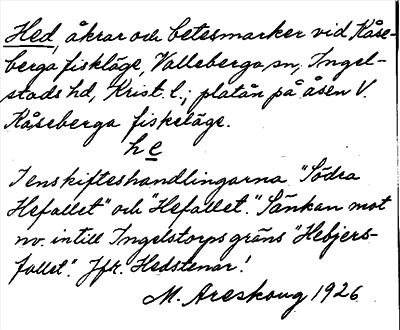 Hed, åkrar och betesmarker vid Kåse-
berga fiskläge, Valleberga sn, Ingel-
stads hd, Krist. l.; platån på åsen V.
Kåseberga fiskeläge.
he
I enskifteshandlingarna "Södra
Hefallet" och "Hefallet". Sänkan mot
nv. intill Ingelstorps gräns "Hebjers-
fallet". Jfr. Hedstenar!
M. Areskoug 1926